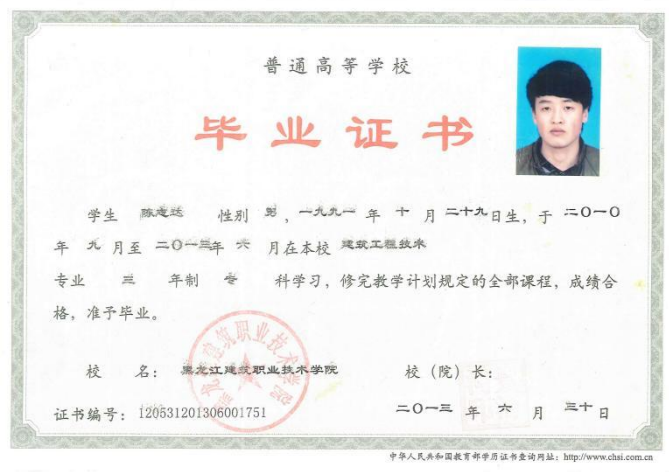 普通高等学校
毕业证书
学生 陈志达 性别 男，一九九一年十月二十九日生，于二〇一〇
年九月至二〇一三年六月在本校 建筑工程技术
专业 三 年制 专 科学习，修完教学计划规定的全部课程，成绩合
格，准予毕业。
校 名：黑龙江建筑职业技术学院 校（院）长：
证书编号：120531201306001751 二〇一三年六月三十日
中华人民共和国教育部学历证书查询网址：http://www.chsi.com.cn